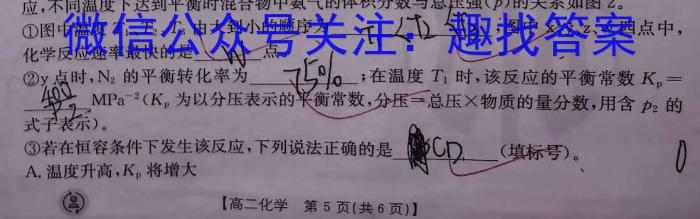 应,不同温度下达到平衡时混合物中氨气的体积分数与总压强(p)的关系如图2。
①图中温度 T₃由大到小的顺序为 T <T2 四点中,
微信公众号关注:趣找答案
化学反应速率最快的是 N 点。
②y点时,N₂ 的平衡转化率为 75% ;在温度 T₁ 时,该反应的平衡常数 Kₚ=
400 MPa⁻²(Kₚ 为以分压表示的平衡常数,分压=总压×物质的量分数,用含 p₂ 的
式子表示)。
③若在恒容条件下发生该反应,下列说法正确的是 CD (填标号)。
A. 温度升高,Kₚ 将增大
【高二化学 第 5 页(共 6 页)】